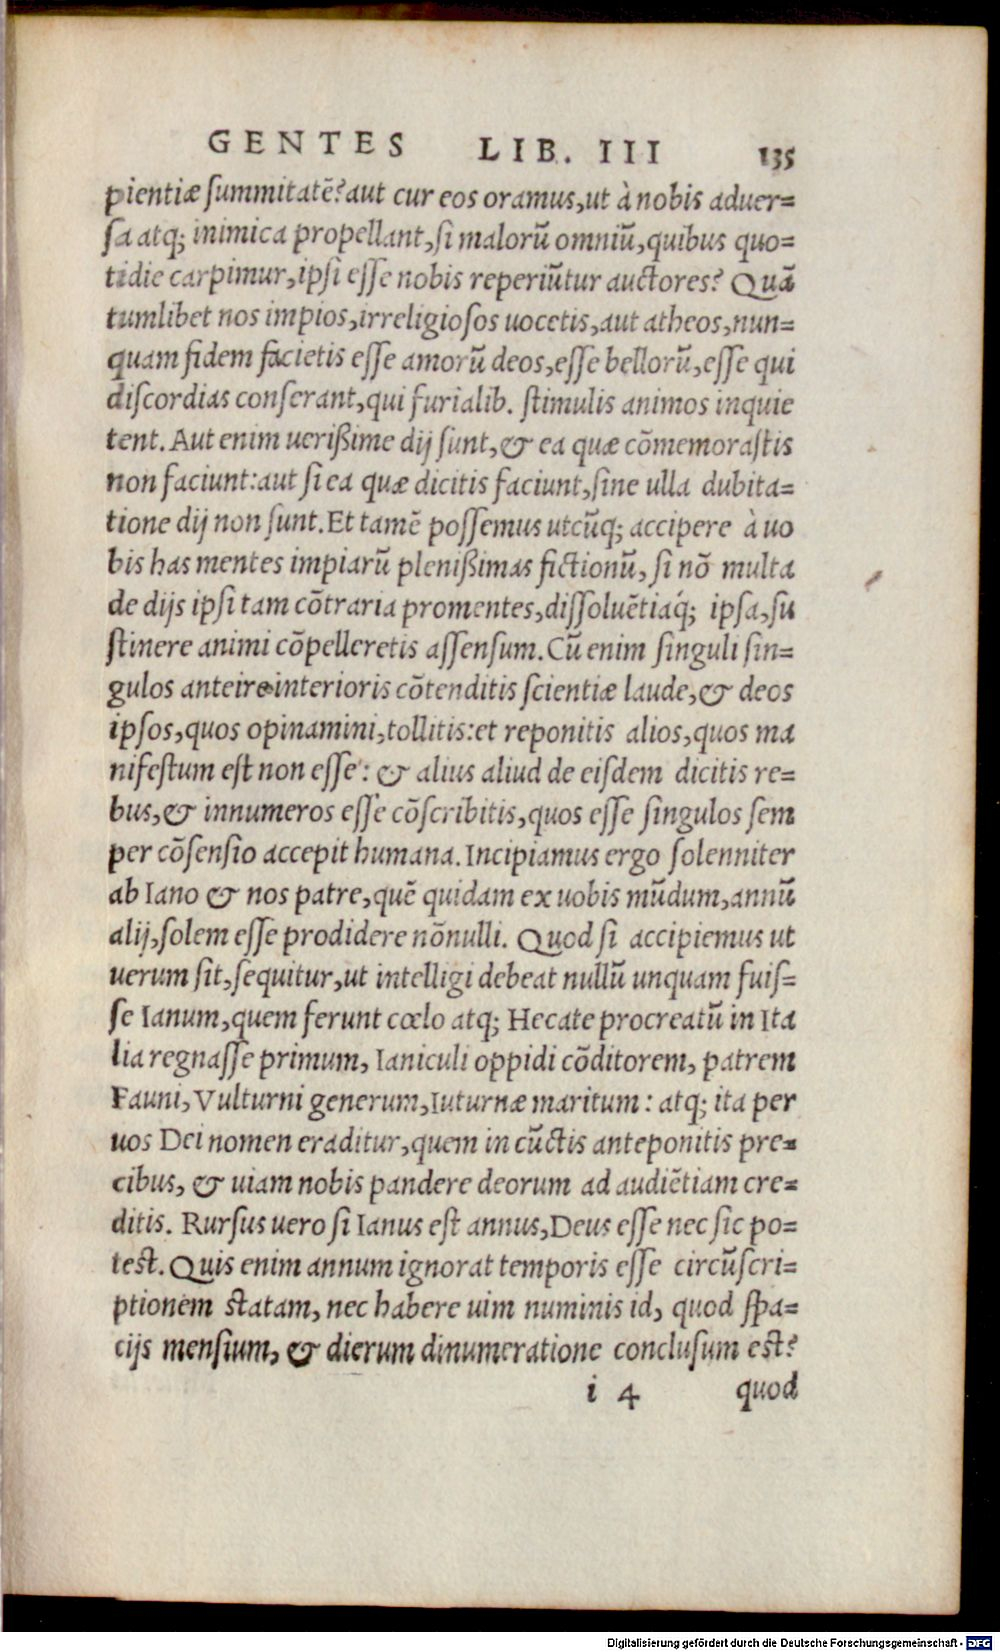 GENTES LIB. III 135
pientiæ ſummitatẽ? aut cur eos oramus, ut à nobis aduer=
ſa atq; inimica propellant, ſi malorũ omniũ, quibus quo=
tidie carpimur, ipſi eſſe nobis reperiũtur auctores? Quã
tumlibet nos impios, irreligioſos uocetis, aut atheos, nun=
quam fidem facietis eſſe amorũ deos, eſſe bellorũ, eſſe qui
diſcordias conſerant, qui furialib. ſtimulis animos inquie
tent. Aut enim uerißime dij ſunt, & ea quæ cõmemoraſtis
non faciunt: aut ſi ea quæ dicitis faciunt, ſine ulla dubita=
tione dij non ſunt. Et tamẽ poſſemus utcũq; accipere à uo
bis has mentes impiarũ pleniſſimas fictionũ, ſi nõ multa
de dijs ipſi tam cõtraria promentes, diſſoluẽtiaq́; ipſa, ſu
ſtinere animi cõpelleretis aſſenſum. Cũ enim ſinguli ſin=
gulos anteire interioris cõtenditis ſcientiæ laude, & deos
ipſos, quos opinamini, tollitis: et reponitis alios, quos ma
nifeſtum eſt non eſſe: & alius aliud de eiſdem dicitis re=
bus, & innumeros eſſe cõſcribitis, quos eſſe ſingulos ſem
per cõſenſio accepit humana. Incipiamus ergo ſolenniter
ab Iano & nos patre, quẽ quidam ex uobis mũdum, annũ
alij, ſolem eſſe prodidere nõnulli. Quod ſi accipiemus ut
uerum ſit, ſequitur, ut intelligi debeat nullũ unquam fuiſ=
ſe Ianum, quem ferunt cœlo atq; Hecate procreatũ in Ita
lia regnaſſe primum, Ianiculi oppidi cõditorem, patrem
Fauni, Vulturni generum, Iuturnæ maritum: atq; ita per
uos Dei nomen eraditur, quem in cũctis anteponitis pre=
cibus, & uiam nobis pandere deorum ad audiẽtiam cre=
ditis. Rurſus uero ſi Ianus eſt annus, Deus eſſe nec ſic po=
teſt. Quis enim annum ignorat temporis eſſe circũſcri=
ptionem ſtatam, nec habere uim numinis id, quod ſpa=
cijs menſium, & dierum dinumeratione concluſum eſt?
i 4 quod
Digitalisierung gefördert durch die Deutsche Forschungsgemeinschaft - DFG